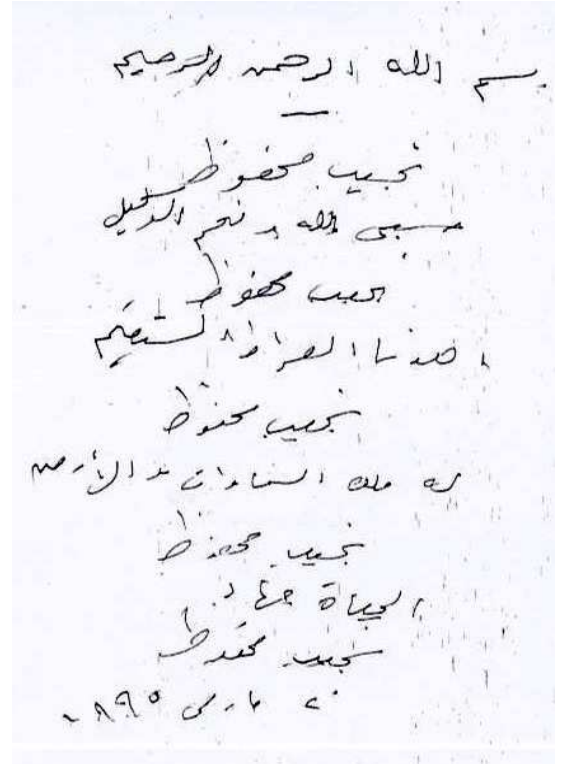 بسم الله الرحمن الرحيم
نجيب محفوظ
حسبى الله ونعم الوكيل
نجيب محفوظ
اهدنا الصراط المستقيم
نجيب محفوظ
له ملك السماوات والأرض
نجيب محفوظ
الحياة جهاد
نجيب محفوظ
مارس